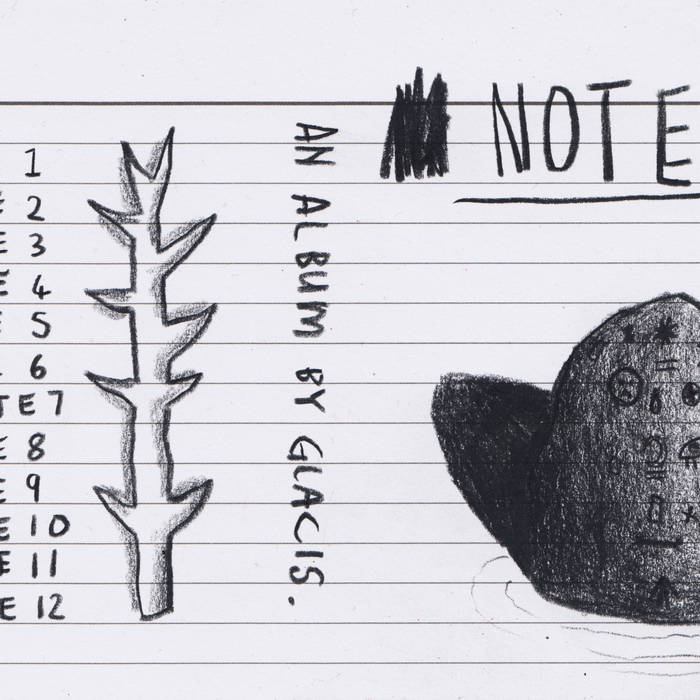 NOTE
AN ALBUM BY GLACIS.
1
E 2
E 3
E 4
E 5
6
TE 7
E 8
E 9
E 10
E 11
E 12